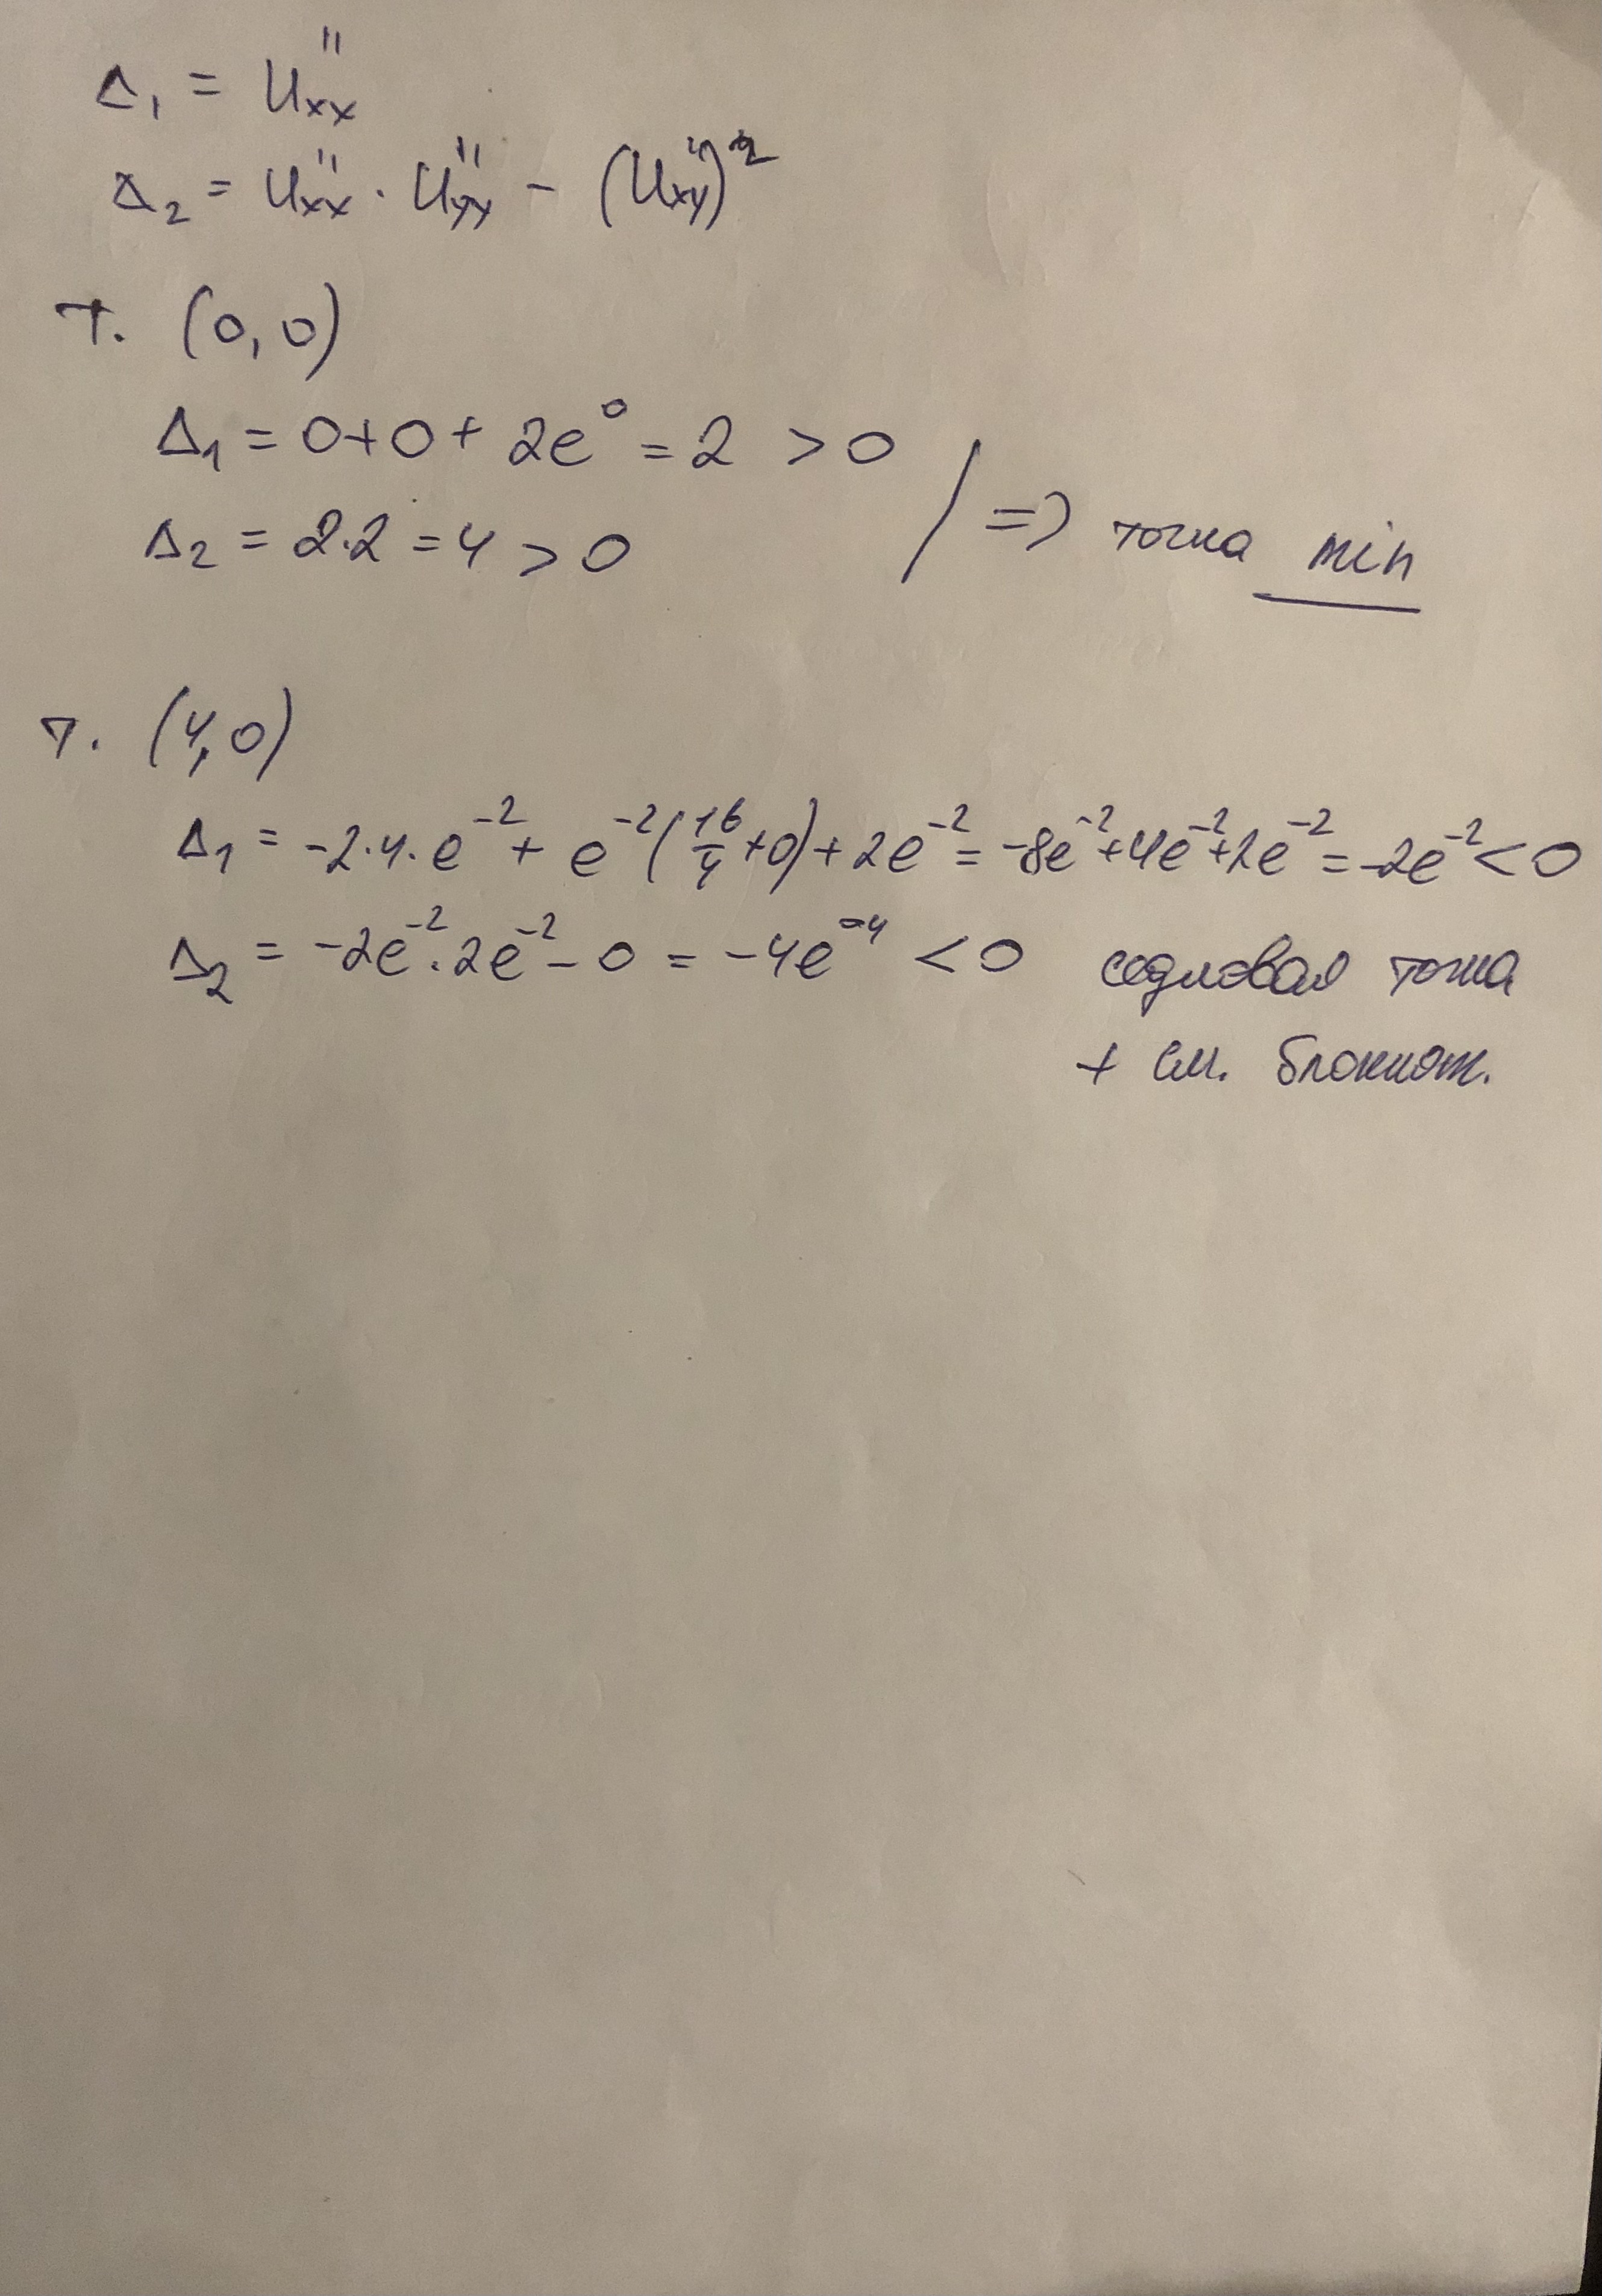 Δ₁ = U''xx
Δ₂ = U''xx · U''yy - (U''xy)²
т. (0, 0)
Δ₁ = 0+0+ 2e⁰ = 2 > 0
Δ₂ = 2·2 = 4 > 0 / => точка min
т. (4, 0)
Δ₁ = -2·4·e⁻² + e⁻²(16/4 +0) + 2e⁻² = -8e⁻²+4e⁻²+2e⁻² = -2e⁻² < 0
Δ₂ = -2e⁻²·2e⁻² - 0 = -4e⁻⁴ < 0 седловая точка
+ см. блокнот.